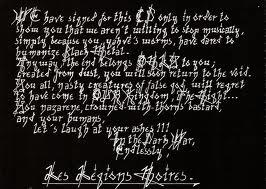 WE have signed for this CD only in order to
show you that we aren't willing to stop musically,
simply because you, yahvé's worms, have dared to
humanize Black Metal.
Anyway the end belongs to you;
created from dust, you will soon return to the void.
You all, nasty creatures of false god, will regret
to have come in OUR kingdom, the Night...
You nazarene, crowned with thorns bastard,
and your humans,
Let's laugh at your ashes !!!
In the Dark War,
Endlessly,
Les Légions Noires.